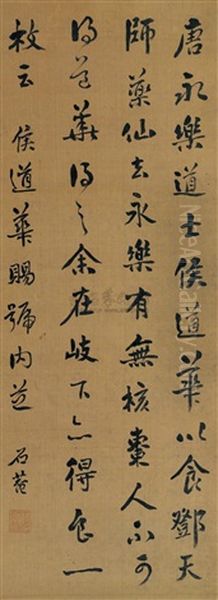 唐永樂道士侯道華以食鄧天
師藥仙去永樂有無核棗人不可
得道華得之余在岐下亦得食一
枚云 侯道華賜號内芝 石菴